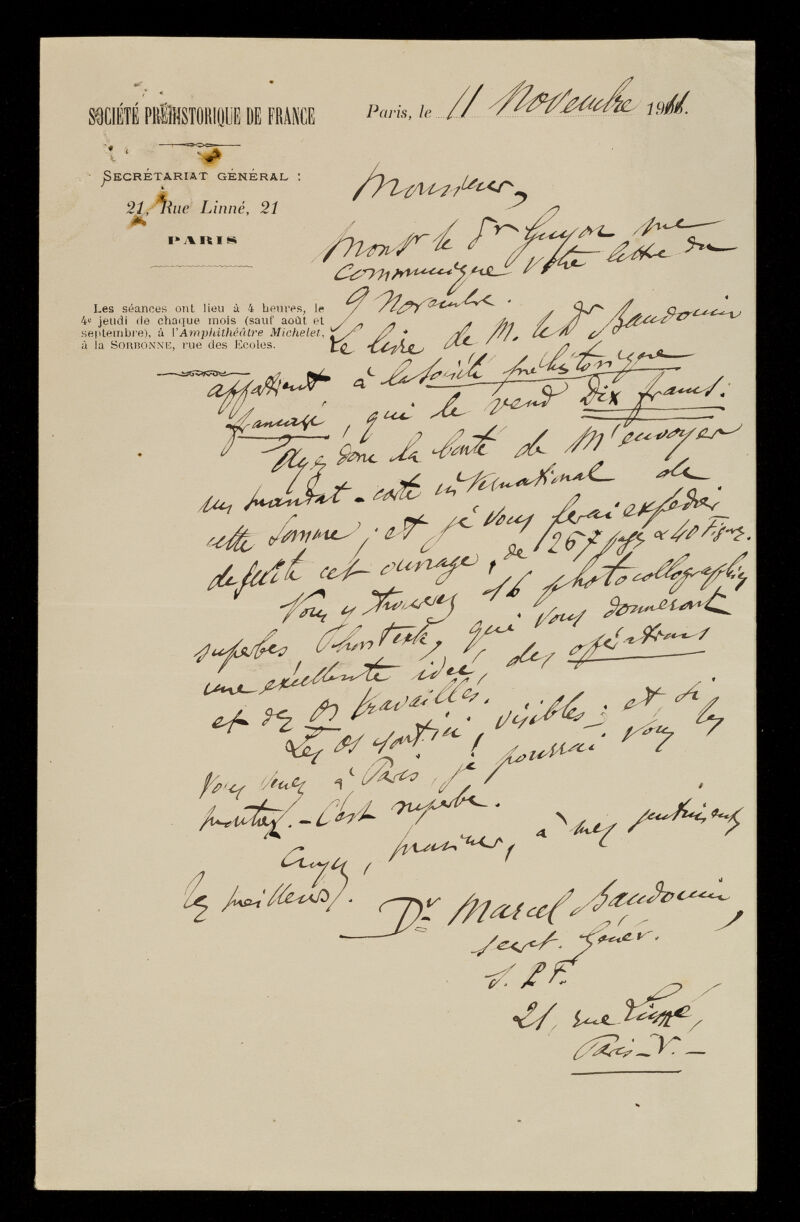 SOCIÉTÉ PRÉHISTORIQUE DE FRANCE
SECRÉTARIAT GÉNÉRAL :
21, Rue Linné, 21
PARIS
Les séances ont lieu à 4 heures, le
4e jeudi de chaque mois (sauf août et
septembre), à l'Amphithéâtre Michelet,
à la SORBONNE, rue des Ecoles.
Paris, le 11 Novembre 1911.
Monsieur,
Monsr le Dr Guyot me
communique votre lettre du
9 Novembre.
Le livre de M. le Dr Baudouin
appartient à la Société préhistorique
française, qui le vend Dix francs.
Ayez donc la bonté de m'envoyer
un mandat-carte international de
cette somme ; et je vous ferai expédier
de suite cet ouvrage, de 267 pages & 40 Figures.
Vous y trouverez 16 photocollographies
superbes hors texte, qui vous donneront
une excellente idée, des opérations
et des os travaillés.
Les os sont ici, visibles ; et si
vous venez à Paris, je pourrai vous les
montrer. - C'est superbe.
Croyez, Monsieur, à mes sentiments
les meilleurs.
Dr Marcel Baudouin,
Secrét. Génér.
S. P. F.
21, rue Linné,
Paris-V.-